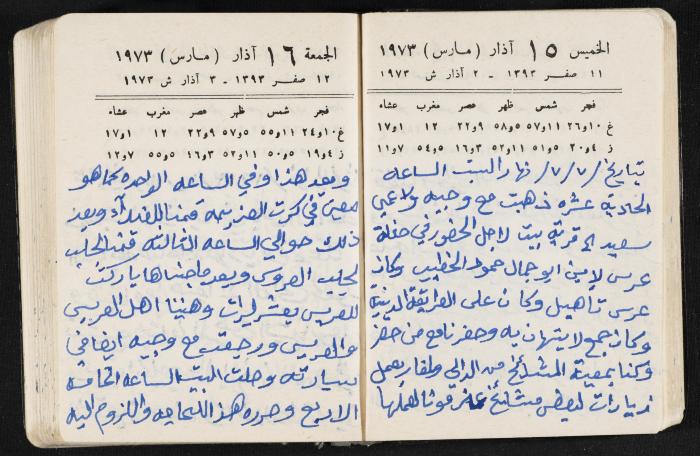 الخميس ١٥ آذار (مارس) ١٩٧٣
١١ صفر ١٣٩٣ - ٢ آذار ش ١٩٧٣
فجر شمس ظهر عصر مغرب عشاء
غ ١٠و٢٦ ١١و٥٧ ٥و٥٨ ٩و٢٢ ١٢ ١و١٧
ز ٤و٢٠ ٥و٥١ ١١و٥٢ ٣و١٦ ٥و٥٤ ٧و١١
بتاريخ /٧/٧/ نهار السبت الساعه
الحاديه عشره ذهبت مع وجيه
سعيد الى قرية بيت لاجل الحضور في حفلة
عرس لإبن ابو جمال حمود الخطيب وكان
عرس تاهيل وكان على الطريقة الدينية
وكان جمع لا يستهان به وحضر نافع من حضر
وكنا بمعية المشائخ من الدالي
زيارات لبعض مشائخ
الجمعة ١٦ آذار (مارس) ١٩٧٣
١٢ صفر ١٣٩٣ - ٣ آذار ش ١٩٧٣
فجر شمس ظهر عصر مغرب عشاء
غ ١٠و٢٤ ١١و٥٥ ٥و٥٧ ٩و٢٢ ١٢ ١و١٧
ز ٤و١٩ ٥و٥٠ ١١و٥٢ ٣و١٦ ٥و٥٥ ٧و١٢
وبعد هذا وفي الساعه الواحده كما هو
معين في كرت العزيمه قمنا للغداء وبعد
ذلك حوالي الساعه الثالثه قمنا لجلب
لجلب العروس وبعد ما جبناها باركت
للعريس بعشر ليرات وهنينا اهل العريس
والعريس ورجعت مع وجيه ايضا في
سيارته وصلت البيت الساعه الخامسه
الا ربع وحرره هذا